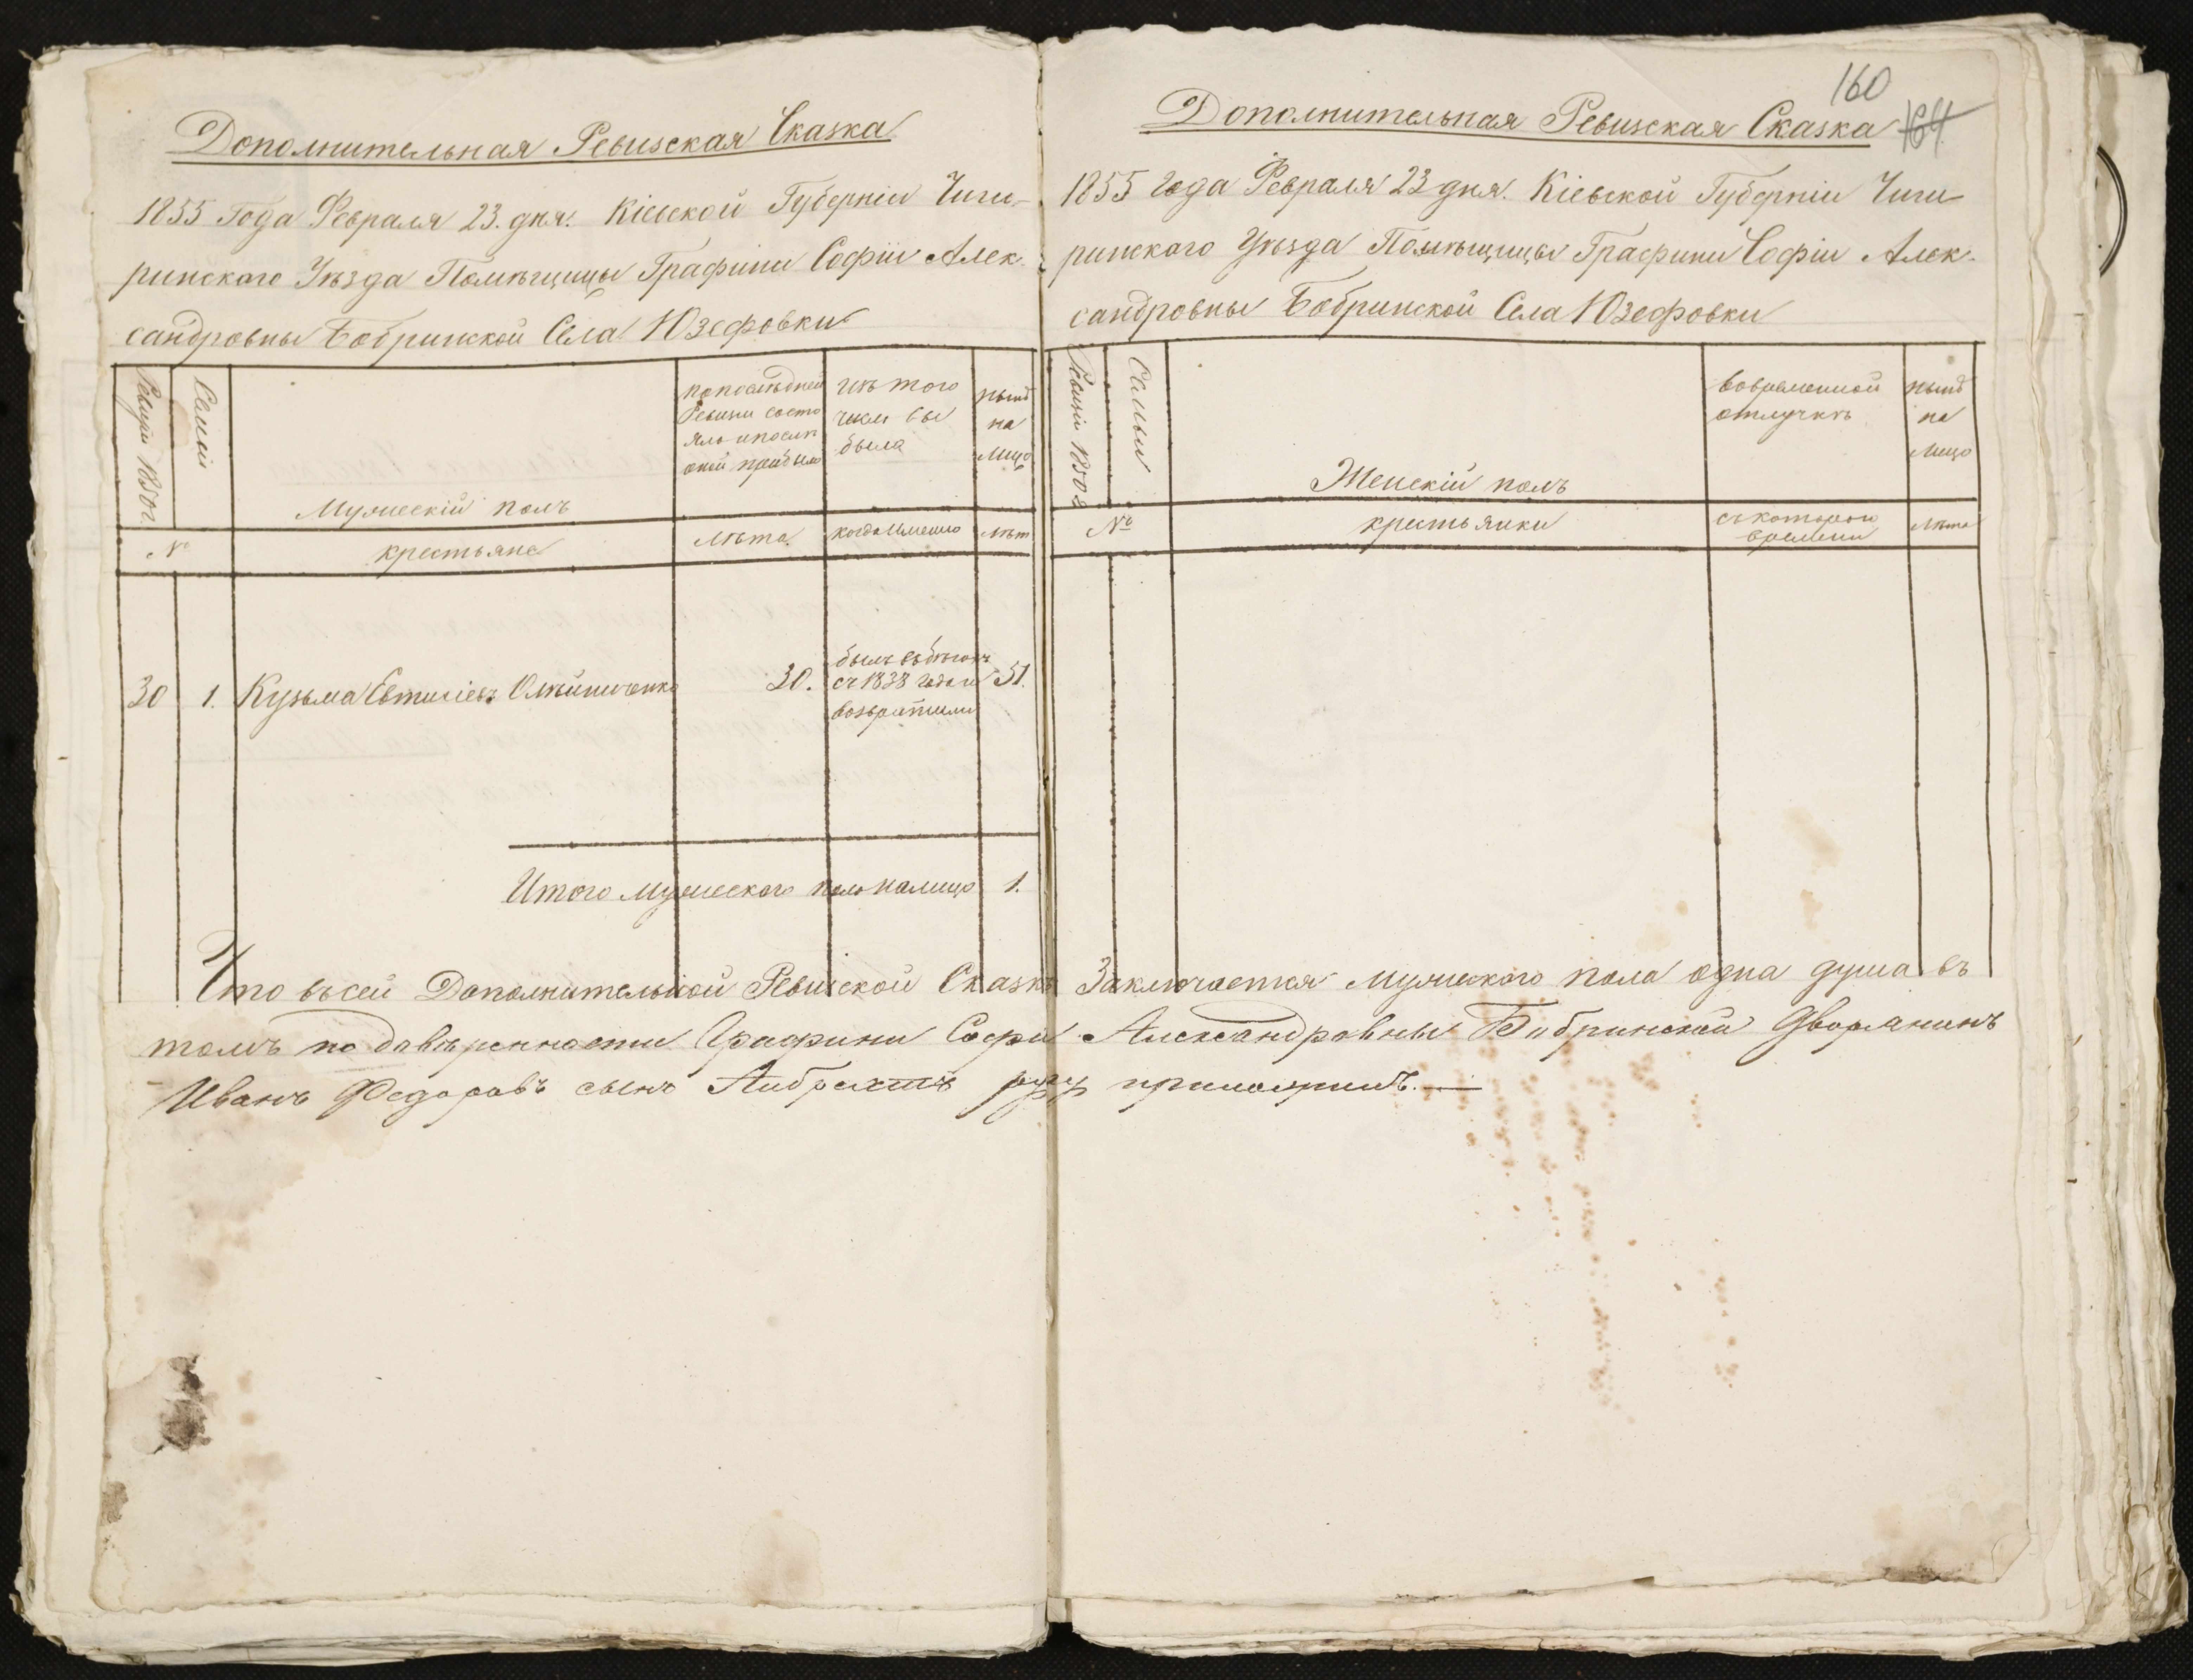 Дополнительная Ревизская Сказка
1855 Года Февраля 23. дня. Кіевской Губерніи Чиги-
ринскаго Уѣзда Помѣщицы Графини Софіи Алек
сандровны Бобринской Села Юзефовки
Ревизіи 1850 г
Семьи
Мужескій полъ
по послѣдней
Ревизіи состо
яло и послѣ
оной прибыло
изъ того
числа вы
было
нынѣ
на
лицо
№
крестьяне
лѣта.
когда именно
лѣта
30
1.
Кузьма Евтихіевъ Олѣйниченко
30.
былъ въ бѣгахъ
съ 1838 года и
возвратился
51.
Итого мужескаго пола на лицо 1.
160
164
Дополнительная Ревизская Сказка
1855 года Февраля 23 дня. Кіевской Губерніи Чиги
ринскаго Уѣзда Помѣщицы Графини Софіи Алек-
сандровны Бобринской Села Юзефовки
Ревизіи 1850 г
Семьи
Женскій полъ
во временной
отлучкѣ
нынѣ
на
лицо
№
крестьянки
съ котораго
времени
лѣта
Что въ сей Дополнительной Ревизской Сказкѣ Заключается мужескаго пола одна душа въ
томъ по довѣренности Графини Софіи Александровны Бобринской Дворянинъ
Иванъ Федоровъ сынъ руку приложилъ.